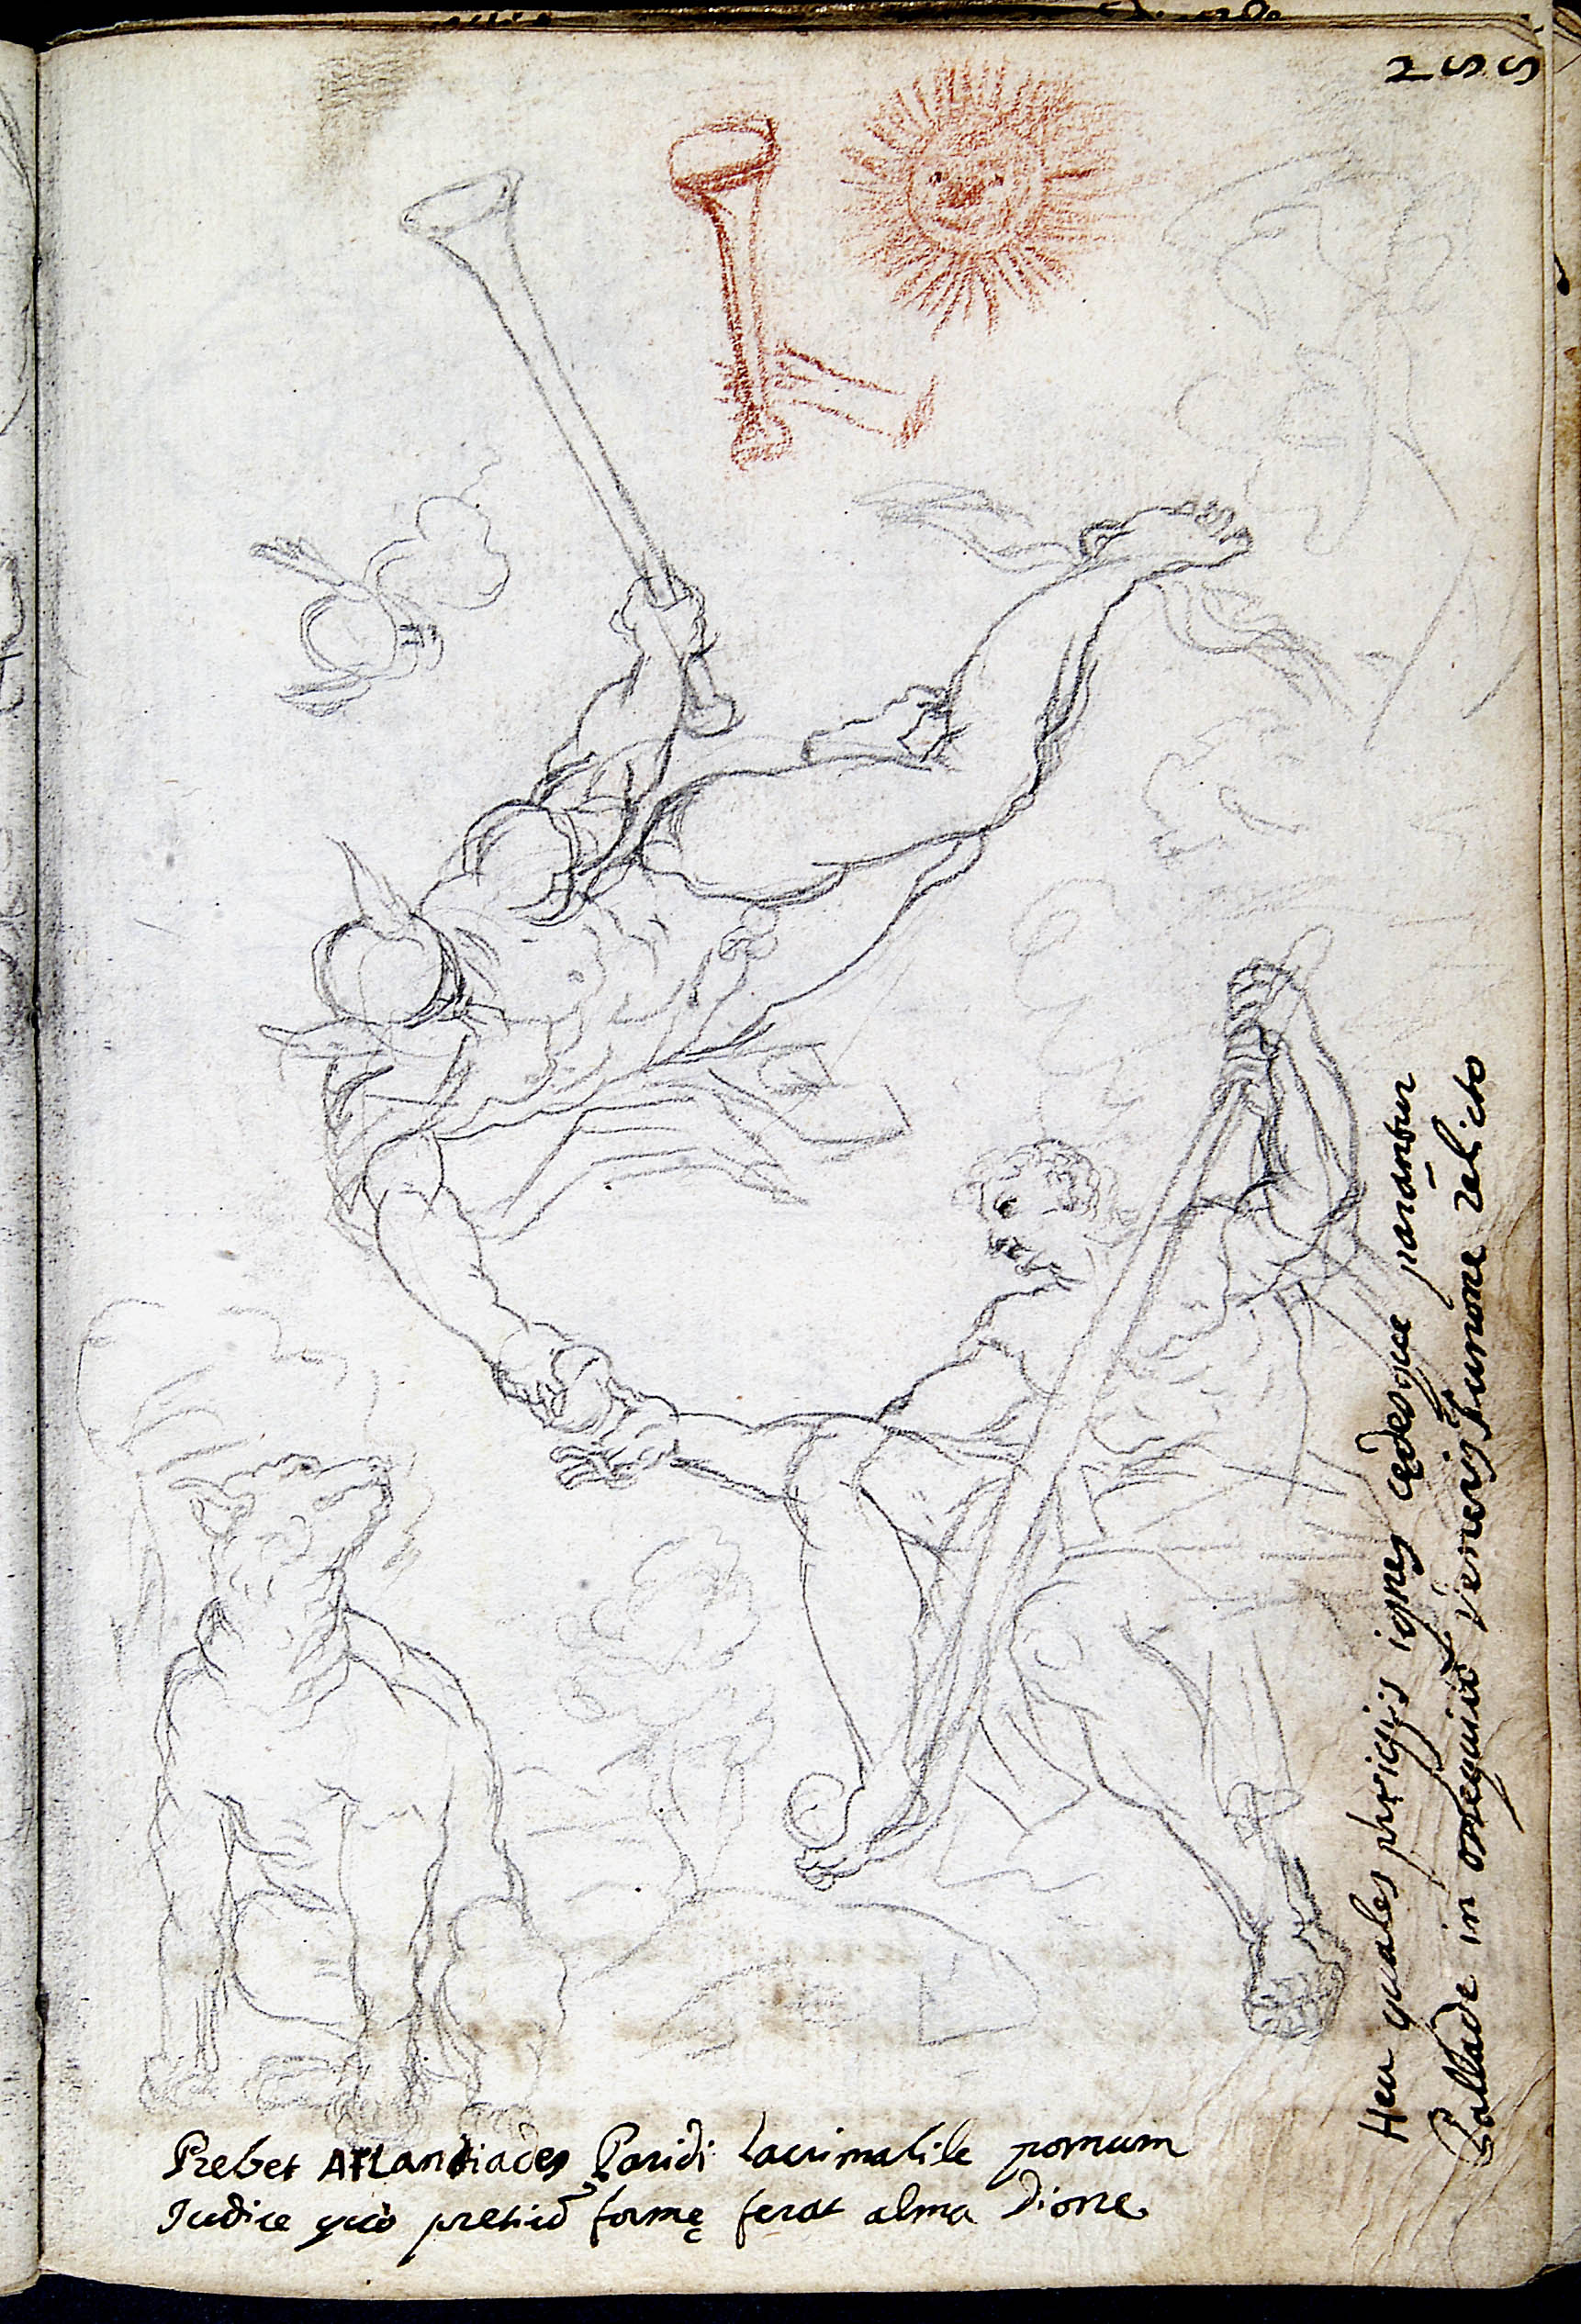 255
Prebet Atlantiades Paridi lacrimabile pomum
Iudice quò pretiū formę ferat alma Dione
Heu quales phrigijs ignes cędesque parantur
Pallade in obsequiū Veneris et Iunone relicto